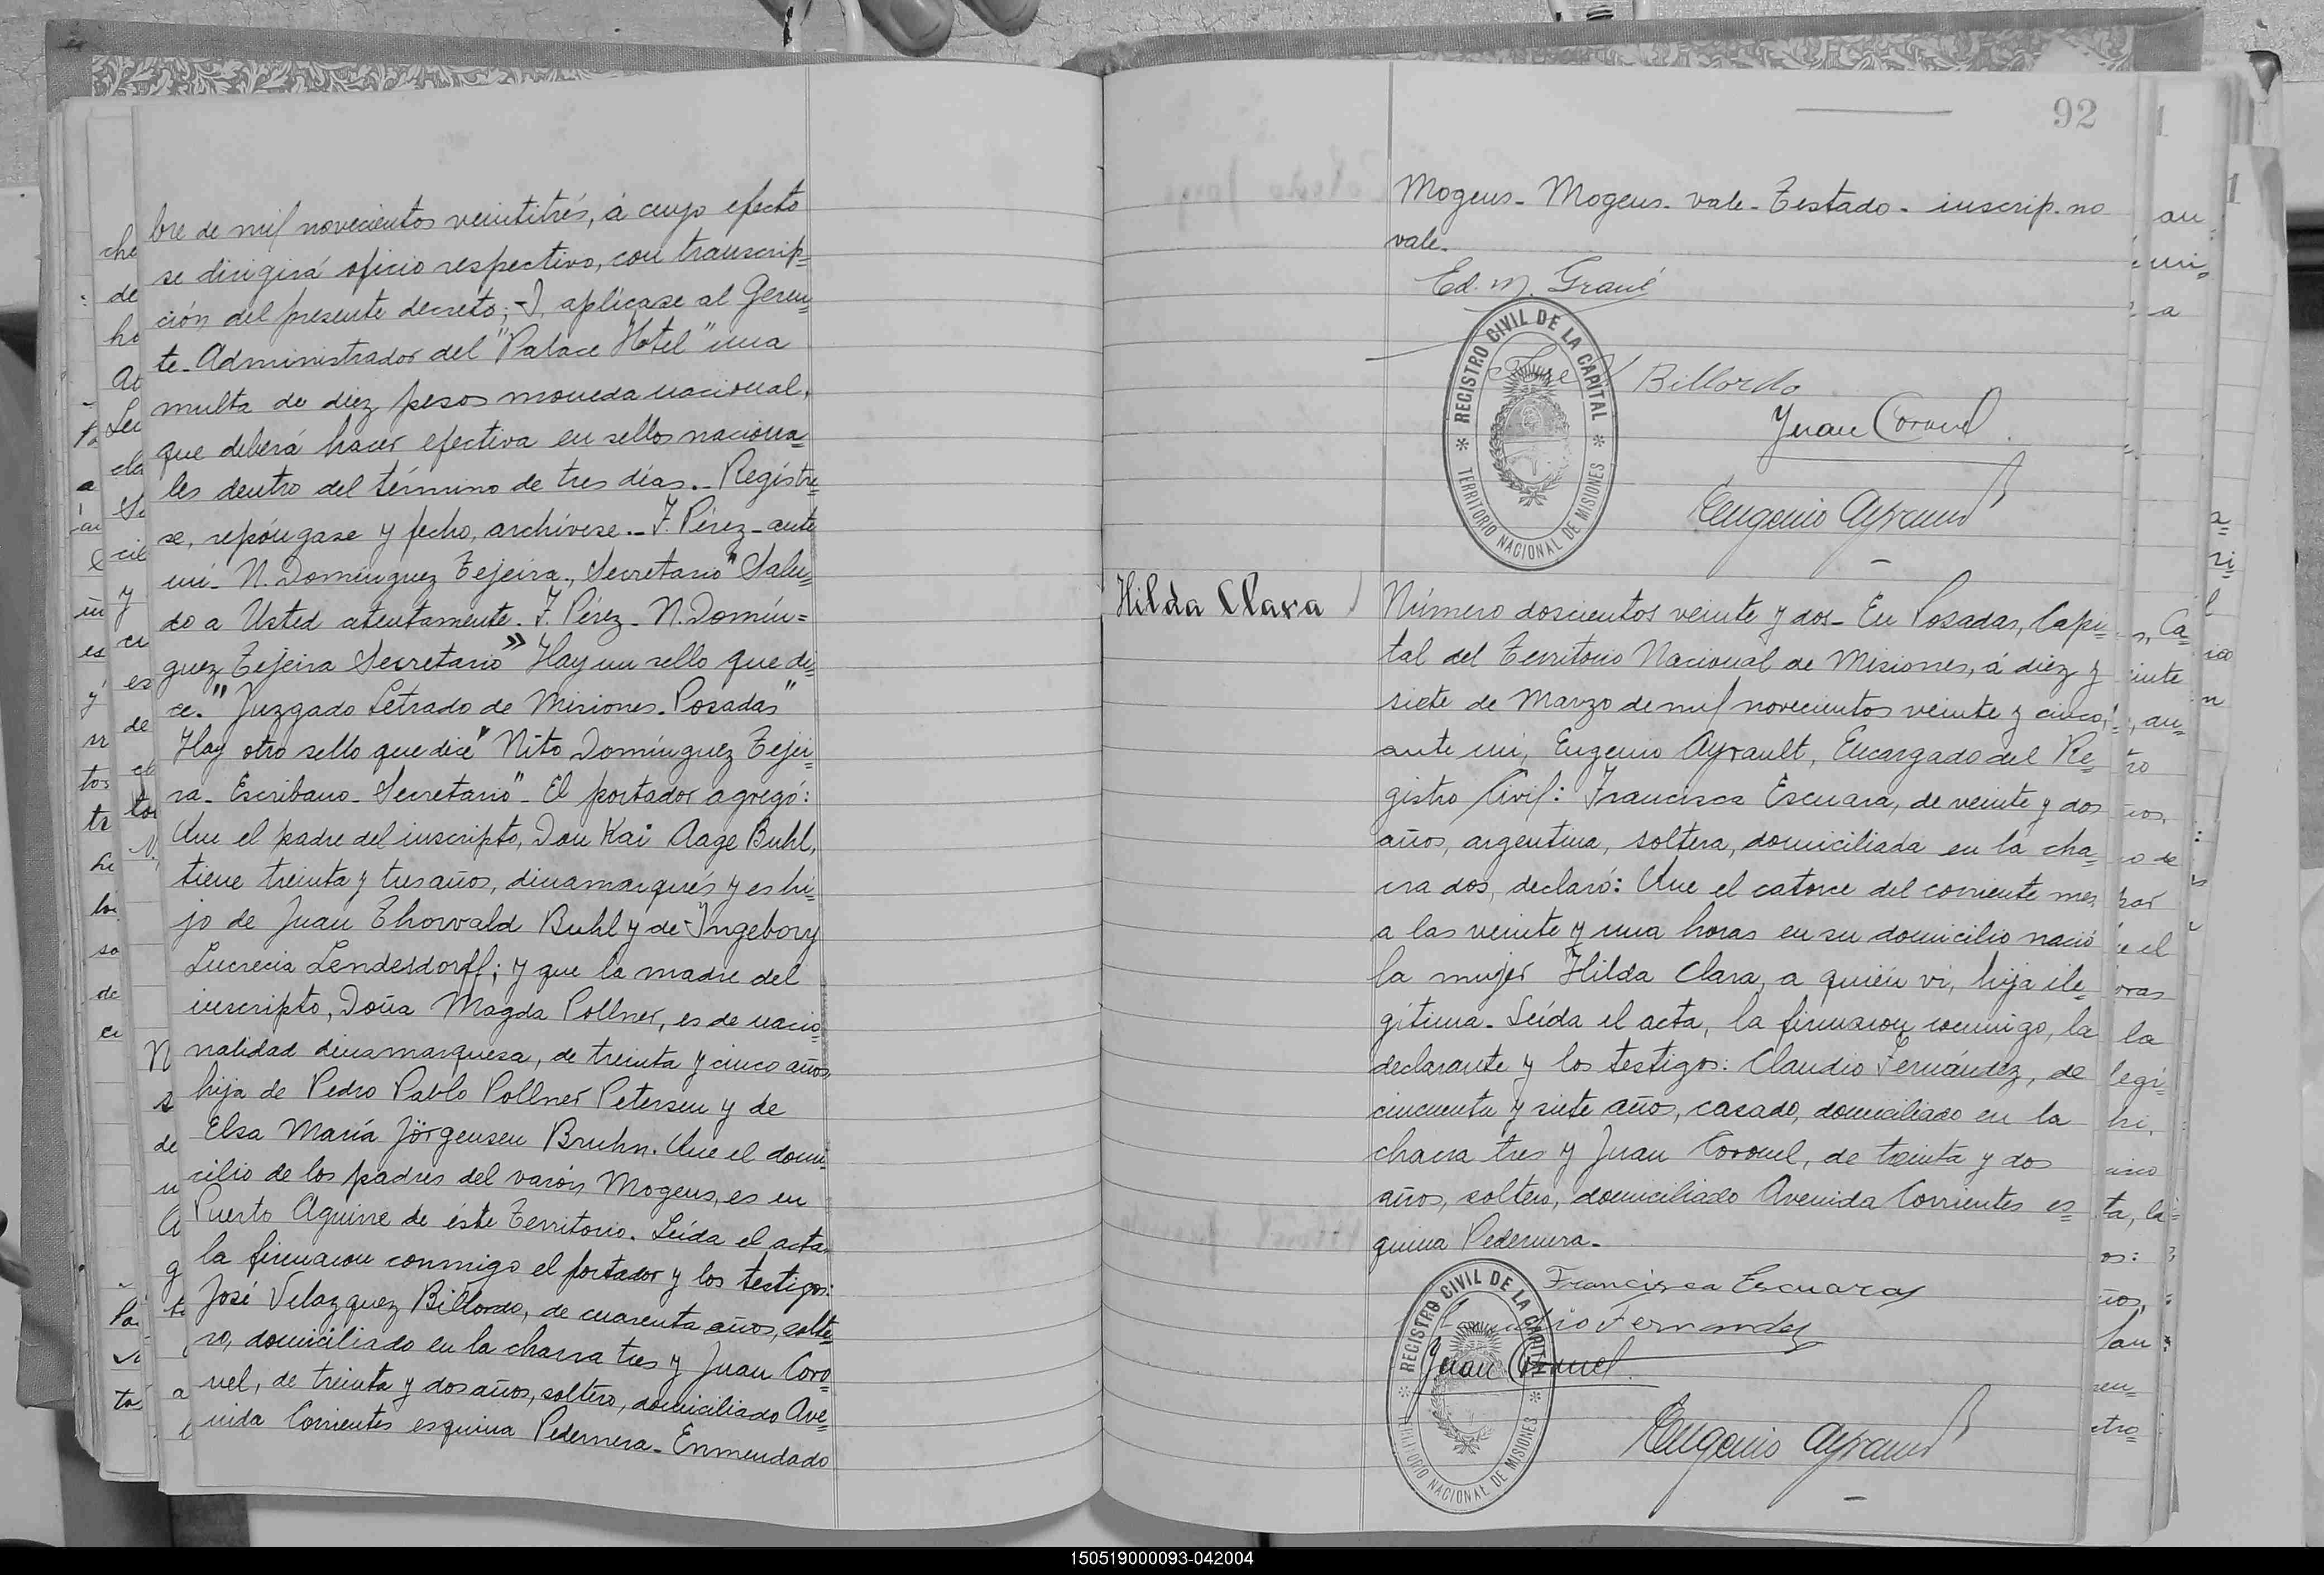 bre de mil novecientos veintitrés, á cuyo efecto
se dirigirá oficio respectivo, con transcrip=
ción del presente decreto; -I, aplícase al Geren=
te-Administrador del "Palace Hotel" una
multa de diez pesos moneda nacional,
que deberá hacer efectiva en sellos naciona=
les dentro del término de tres días.- Regístre=
se, repóngase y fecho, archívese.- F. Pérez - ante
mí - N. Domínguez Tejeira., Secretario" Salu=
do a Usted atentamente. F. Pérez - N. Domín=
guez Tejeira Secretario" Hay un sello que di=
ce. "Juzgado Letrado de Misiones - Posadas"
Hay otro sello que dice "Nito Domínguez Tejei=
ra - Escribano - Secretario" - El portador agregó:
Que el padre del inscripto, Don Kai Aage Buhl,
tiene treinta y tres años, dinamarqués y es hi=
jo de Juan Thorvald Buhl y de Ingeborg
Lucrecia Lendesdorff; y que la madre del
inscripto, Doña Magda Pollner, es de nacio=
nalidad dinamarquesa, de treinta y cinco años,
hija de Pedro Pablo Pollner Petersen y de
Elsa María Jörgensen Bruhn. Que el domi=
cilio de los padres del varón Mogens, es en
Puerto Aguirre de éste Territorio. Leída el acta,
la firmaron conmigo el portador y los testigos:
José Velazquez Billordo, de cuarenta años, solte=
ro, domiciliado en la chacra tres y Juan Coro=
nel, de treinta y dos años, soltero, domiciliado Ave=
nida Corrientes esquina Pedernera - Enmendado
92
Mogens - Mogens - vale - Testado - inscrip - no
vale.
Ed. M. Grané
REGISTRO CIVIL DE LA CAPITAL
TERRITORIO NACIONAL DE MISIONES
José V Billordo
Juan Coronel
Eugenio Ayrault
Hilda Clara
Número doscientos veinte y dos - En Posadas, Capi=
tal del Territorio Nacional de Misiones, á diez y
siete de Marzo de mil novecientos veinte y cinco,
ante mí, Eugenio Ayrault, Encargado del Re=
gistro Civil: Francisca Escuara, de veinte y dos
años, argentina, soltera, domiciliada en la cha=
cra dos, declaró: Que el catorce del corriente mes
a las veinte y una horas en su domicilio nació
la mujer Hilda Clara, a quién vi, hija ile=
gítima - Leída el acta, la firmaron conmigo, la
declarante y los testigos: Claudio Fernández, de
cincuenta y siete años, casado, domiciliado en la
chacra tres y Juan Coronel, de treinta y dos
años, soltero, domiciliado Avenida Corrientes es=
quina Pedernera -
REGISTRO CIVIL DE LA CAPITAL
TERRITORIO NACIONAL DE MISIONES
Francisca Escuara
Claudio Fernandez
Juan Coronel
Eugenio Ayrault
150519000093-042004